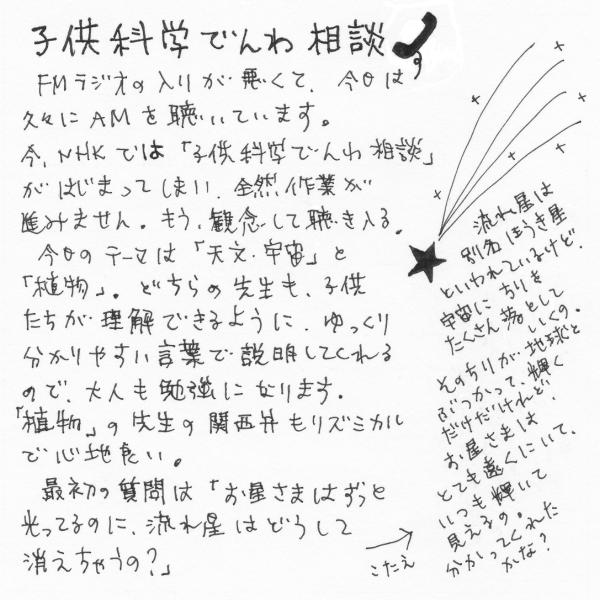 子供科学でんわ相談
FMラジオの入りが悪くて、今日は
久々にAMを聴いています。
今、NHKでは「子供科学でんわ相談」
がはじまってしまい、全然作業が
進みません。もう、観念して聴き入る。
今日のテーマは「天文・宇宙」と
「植物」。どちらの先生も、子供
たちが理解できるように、ゆっくり
分かりやすい言葉で説明してくれる
ので、大人も勉強になります。
「植物」の先生の関西弁もリズミカル
で心地良い。
最初の質問は「お星さまはずっと
光ってるのに、流れ星はどうして
消えちゃうの?」
こたえ
流れ星は
別名ほうき星
といわれているけど、
宇宙にちりを
たくさん落として
いくの。
そのちりが地球と
ぶつかって、輝く
だけだけれど、
お星さまは
とても遠くにいて、
いつも輝いて
見えるの。
分かってくれた
かな?